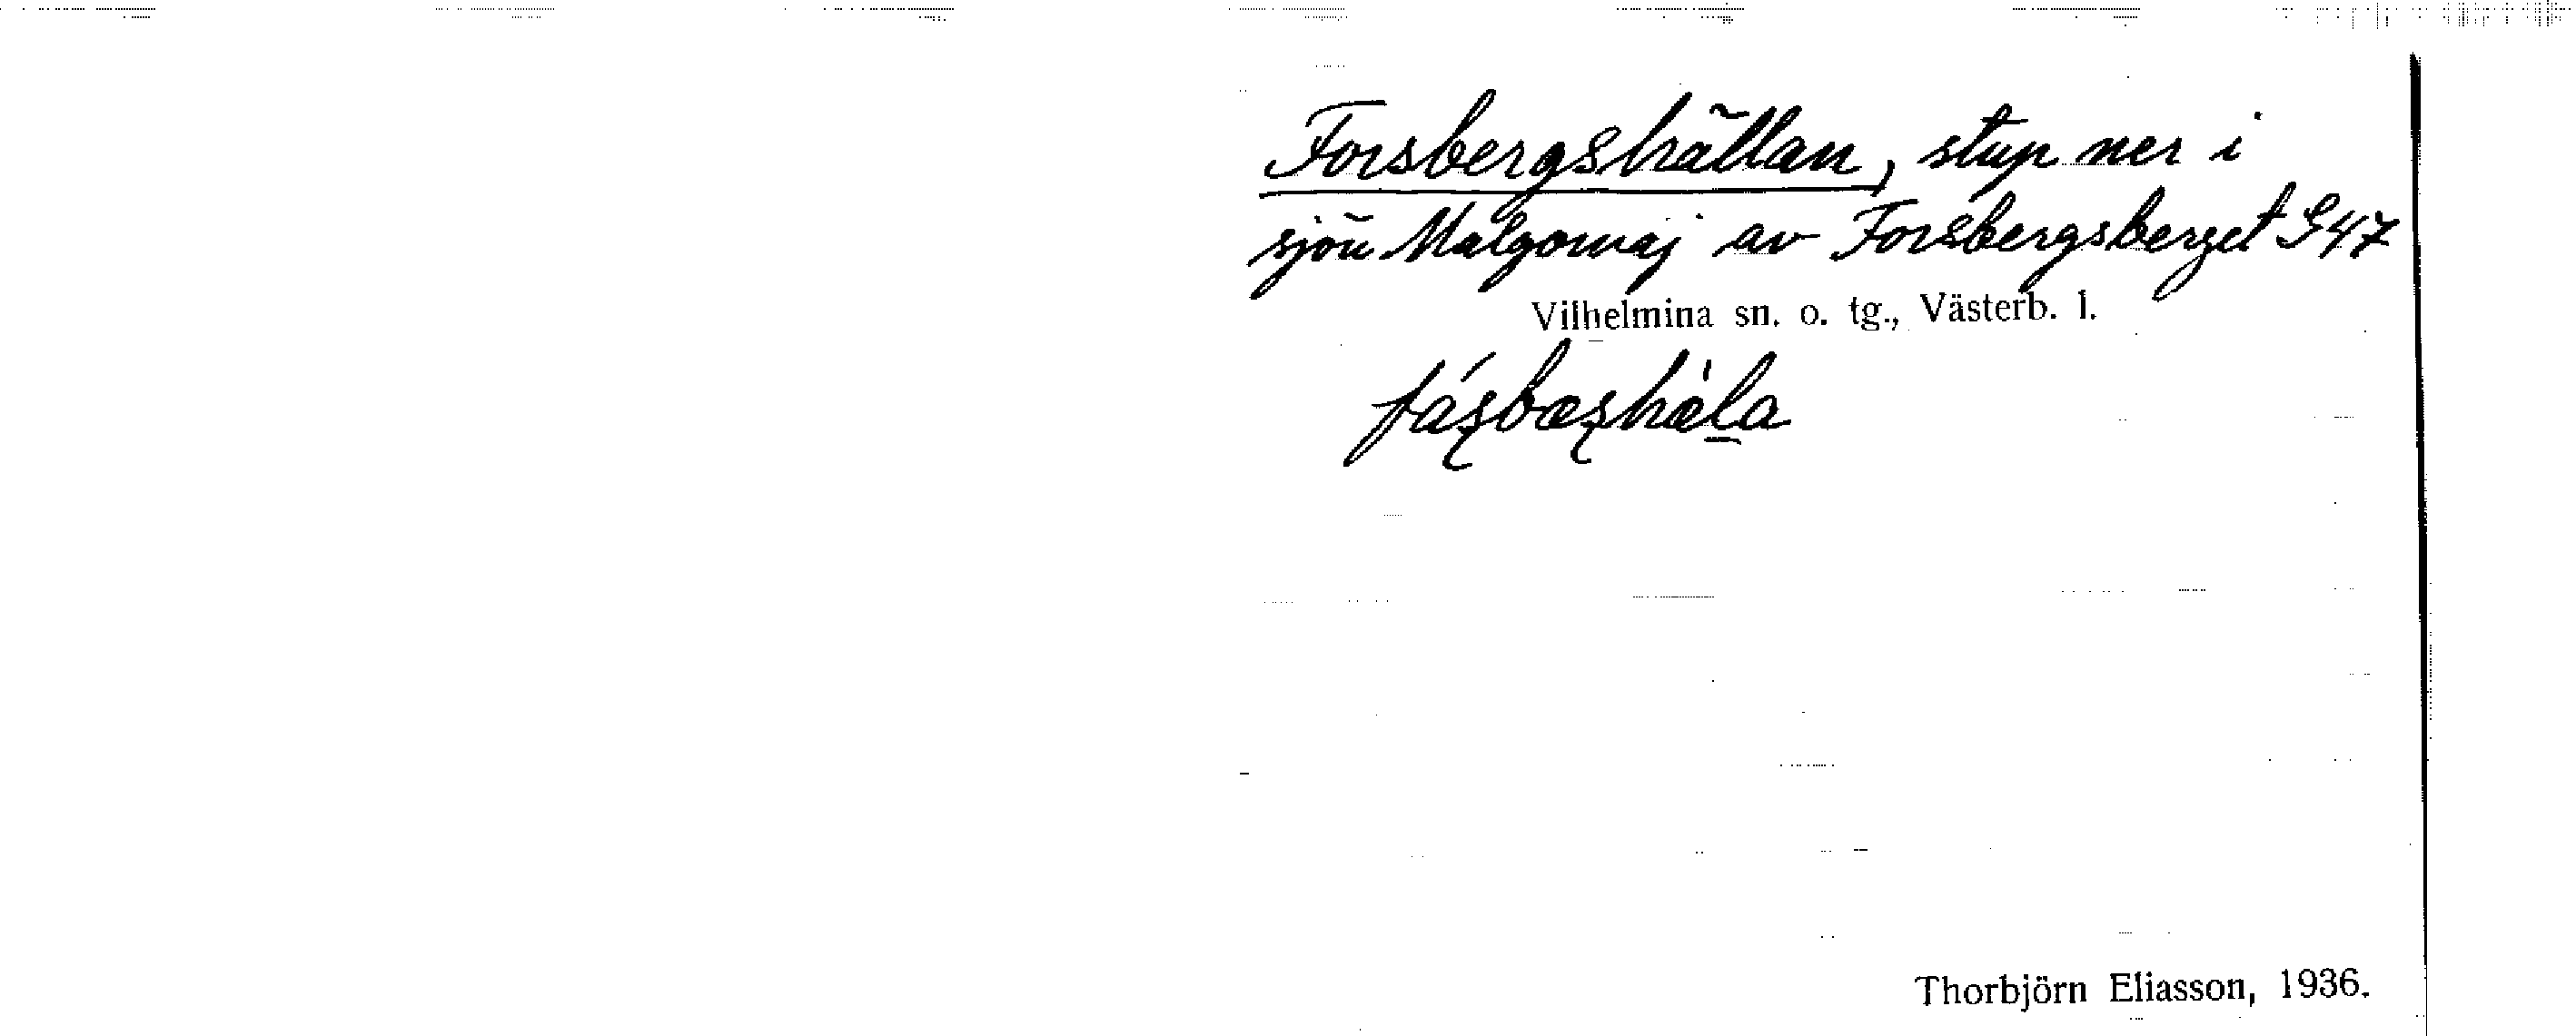 Forsbergshällan, stup ner i
sjön Malgomaj av Forsbergsberget S47
Vilhelmina sn. o. tg., Västerb. l.
Thorbjörn Eliasson, 1936.